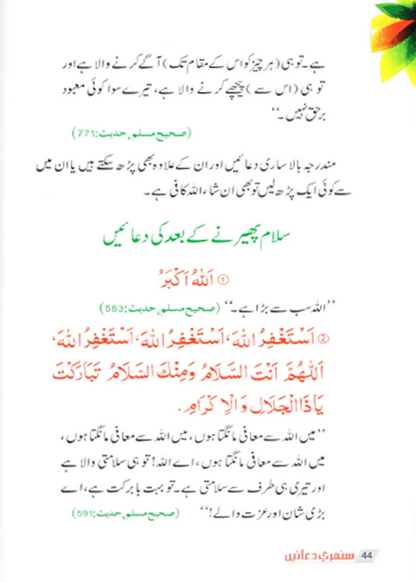 ہے۔تو ہی (ہر چیز کو اس کے مقام تک) آگے کرنے والا ہے اور
تو ہی (اس سے) پیچھے کرنے والا ہے، تیرے سوا کوئی معبود
برحق نہیں۔‘‘
(صحیح مسلم، حدیث:771)
مندرجہ بالا ساری دعائیں اور ان کے علاوہ بھی پڑھ سکتے ہیں یا ان میں
سے کوئی ایک پڑھ لیں تو بھی ان شاء اللہ کافی ہے۔
سلام پھیرنے کے بعد کی دعائیں
① اَللهُ اَكْبَرُ
’’اللہ سب سے بڑا ہے۔‘‘ (صحیح مسلم، حدیث:583)
② اَسْتَغْفِرُ اللهَ، اَسْتَغْفِرُ اللهَ، اَسْتَغْفِرُ اللهَ،
اَللّٰهُمَّ اَنْتَ السَّلَامُ وَمِنْكَ السَّلَامُ تَبَارَكْتَ
يَاذَا الْجَلَالِ وَالْاِكْرَامِ.
’’میں اللہ سے معافی مانگتا ہوں، میں اللہ سے معافی مانگتا ہوں،
میں اللہ سے معافی مانگتا ہوں، اے اللہ! تو ہی سلامتی والا ہے
اور تیری ہی طرف سے سلامتی ہے۔تو بہت بابرکت ہے، اے
بڑی شان اور عزت والے!‘‘ (صحیح مسلم، حدیث:591)
44 سنہری دعائیں